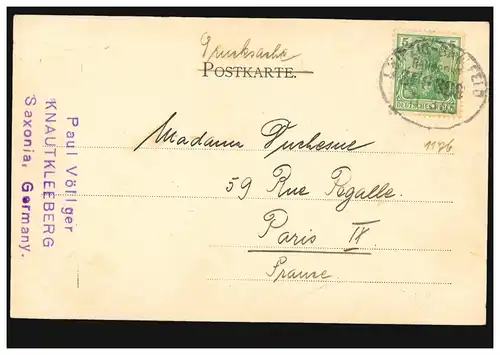 Drucksache
POSTKARTE.
5
DEUTSCHES REICH
1176
Madame Duchesne
59 Rue Pigalle.
Paris IX.
France
Paul Völlger
KNAUTKLEEBERG
Saxonia, Germany.